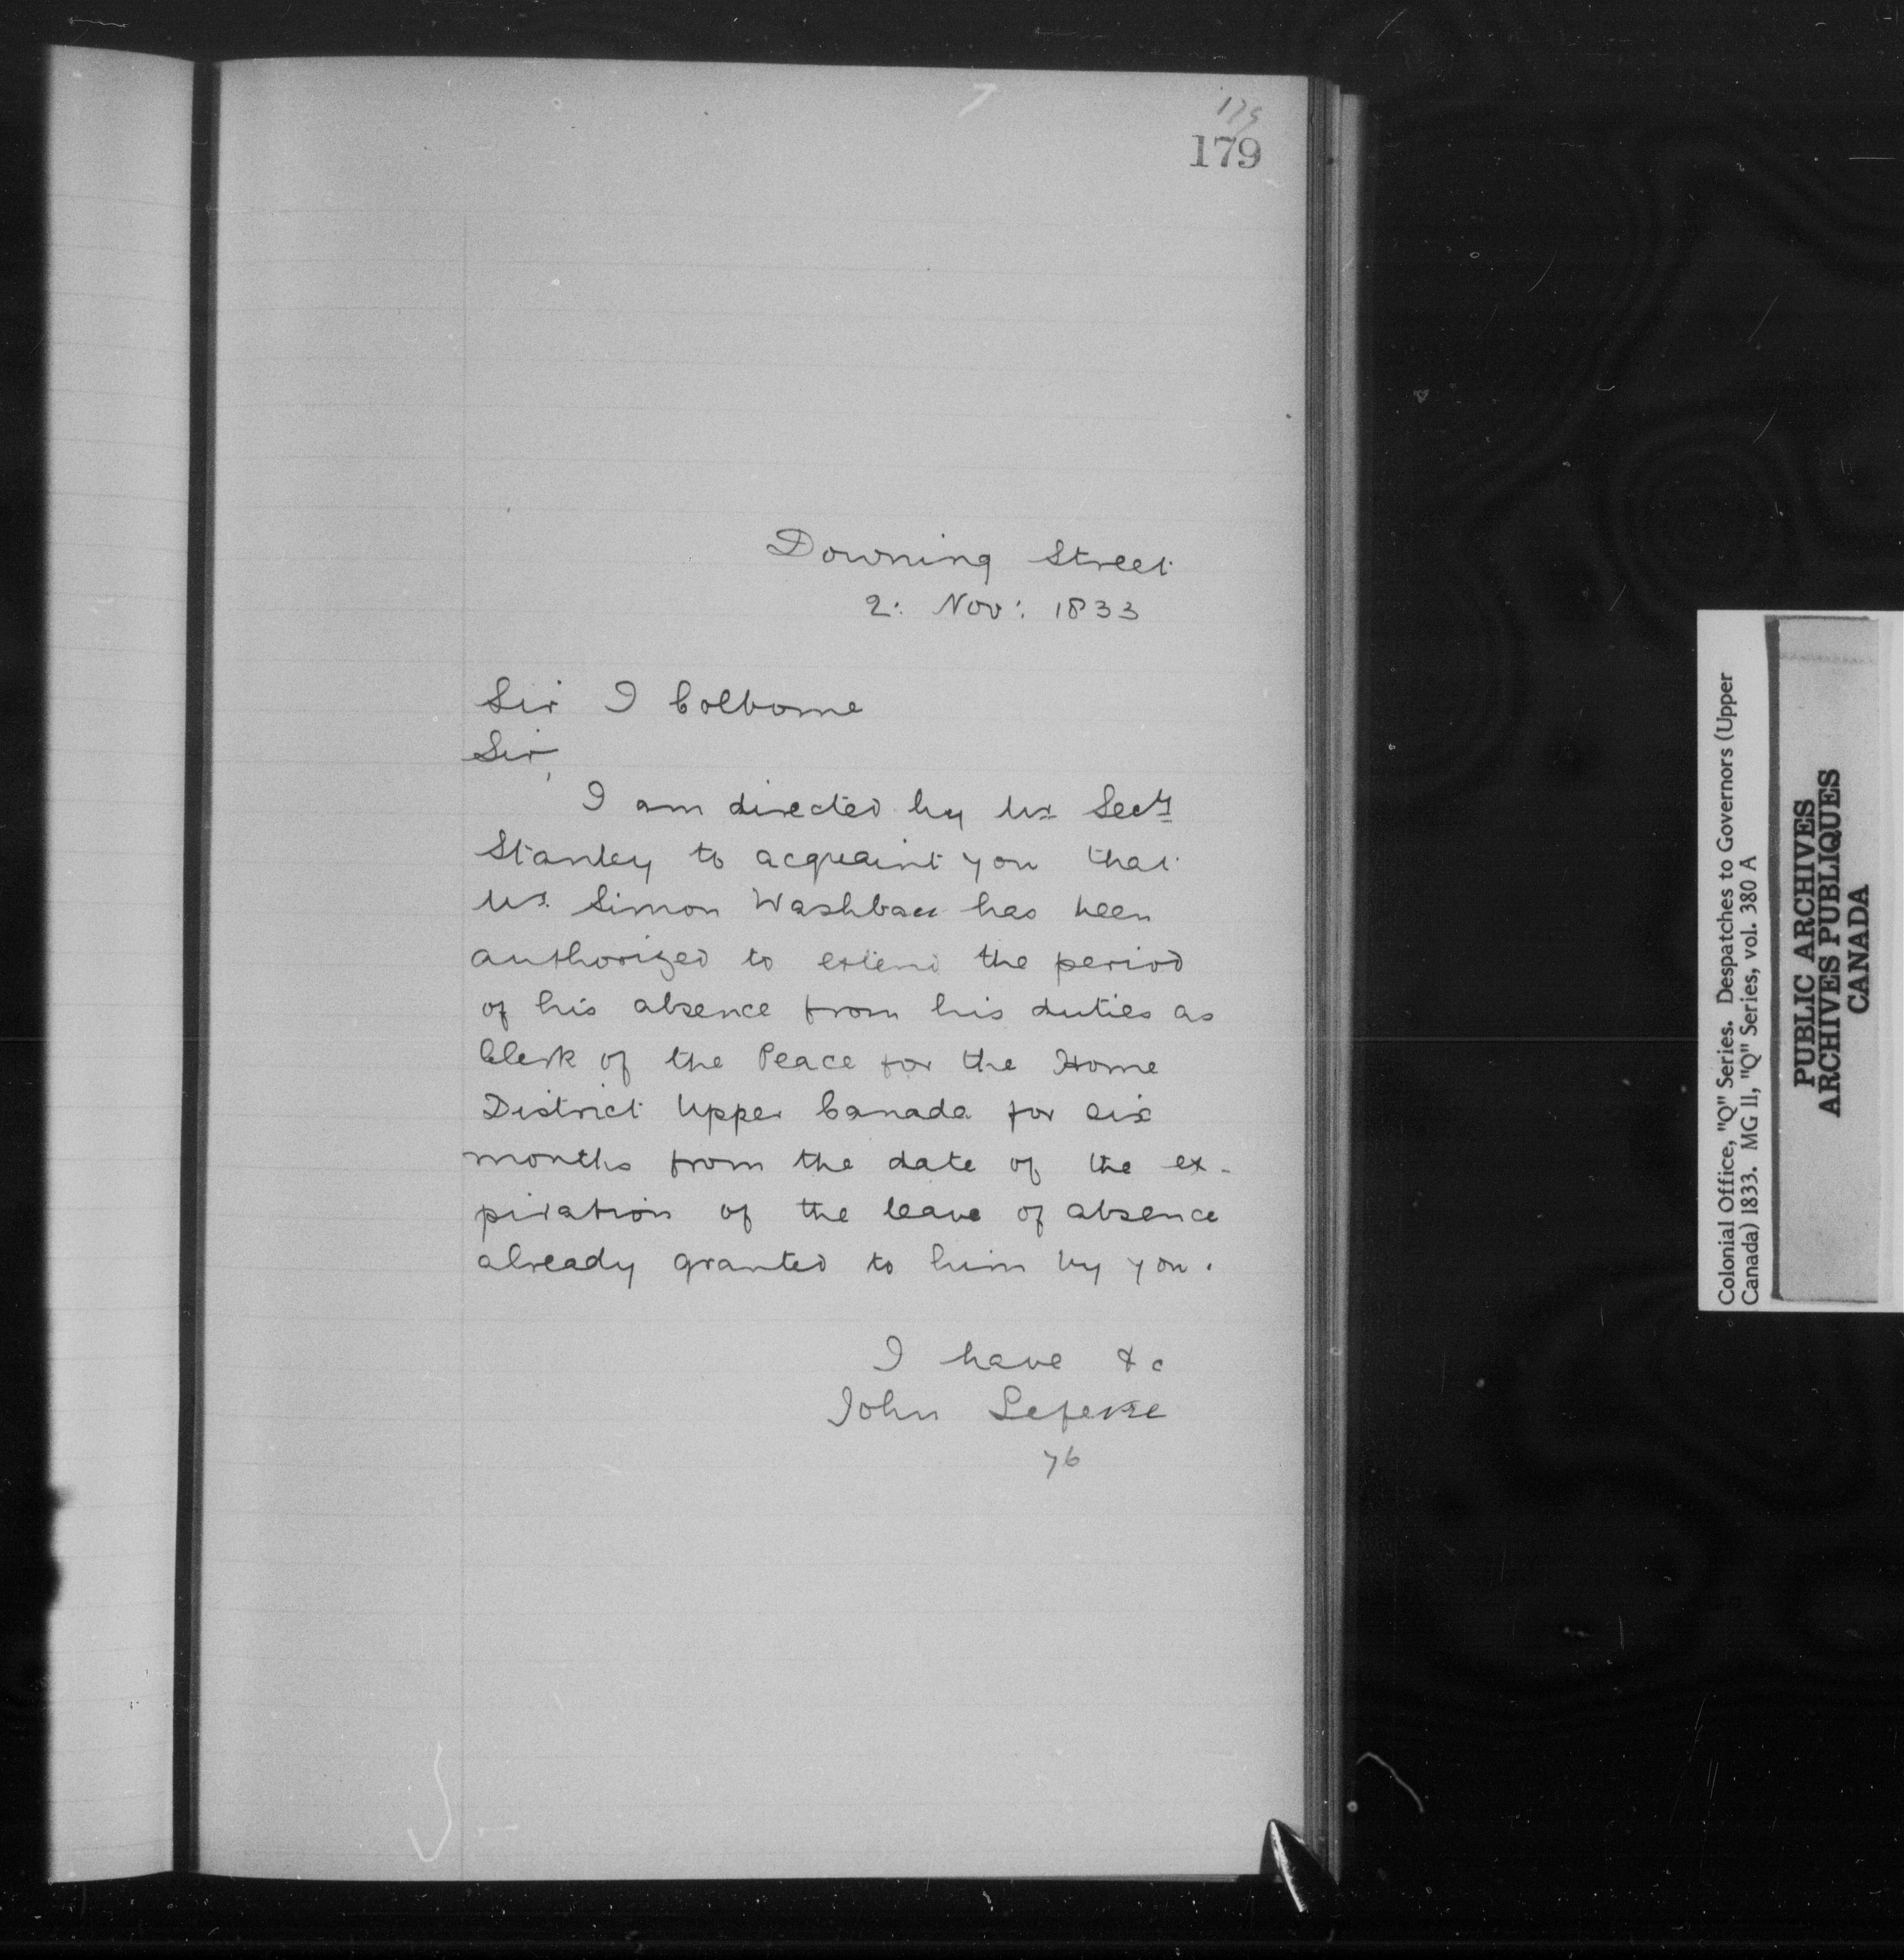 179
179
Downing Street
2: Nov: 1833
Sir J Colborne
Sir,
I am directed by Mr Secy
Stanley to acquaint you that
Mr. Simon Washbaer has been
authorized to extend the period
of his absence from his duties as
Clerk of the Peace for the Home
District Upper Canada for six
months from the date of the ex-
piration of the leave of absence
already granted to him by you.
I have &c
John Lefevre
76
Colonial Office, "Q" Series. Despatches to Governors (Upper
Canada) 1833. MG 11, "Q" Series, vol. 380 A
PUBLIC ARCHIVES
ARCHIVES PUBLIQUES
CANADA